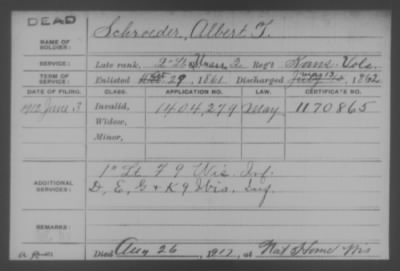 DEAD
NAME OF SOLDIER: Schroeder, Albert F.
SERVICE: Late rank, 2 Lt 2 Reg't Kans. Vols.
TERM OF SERVICE: Enlisted 29, 1861. Discharged 1862
DATE OF FILING. CLASS. APPLICATION NO. LAW. CERTIFICATE NO.
1912 June 3 Invalid, 1404279 May 1170865
Widow,
Minor,
1st Lt F 9 Wis. Inf.
ADDITIONAL SERVICES: D, E, G & K 9 Wis. Inf.
REMARKS:
Died Aug 26, 1917, at Nat Home Wis